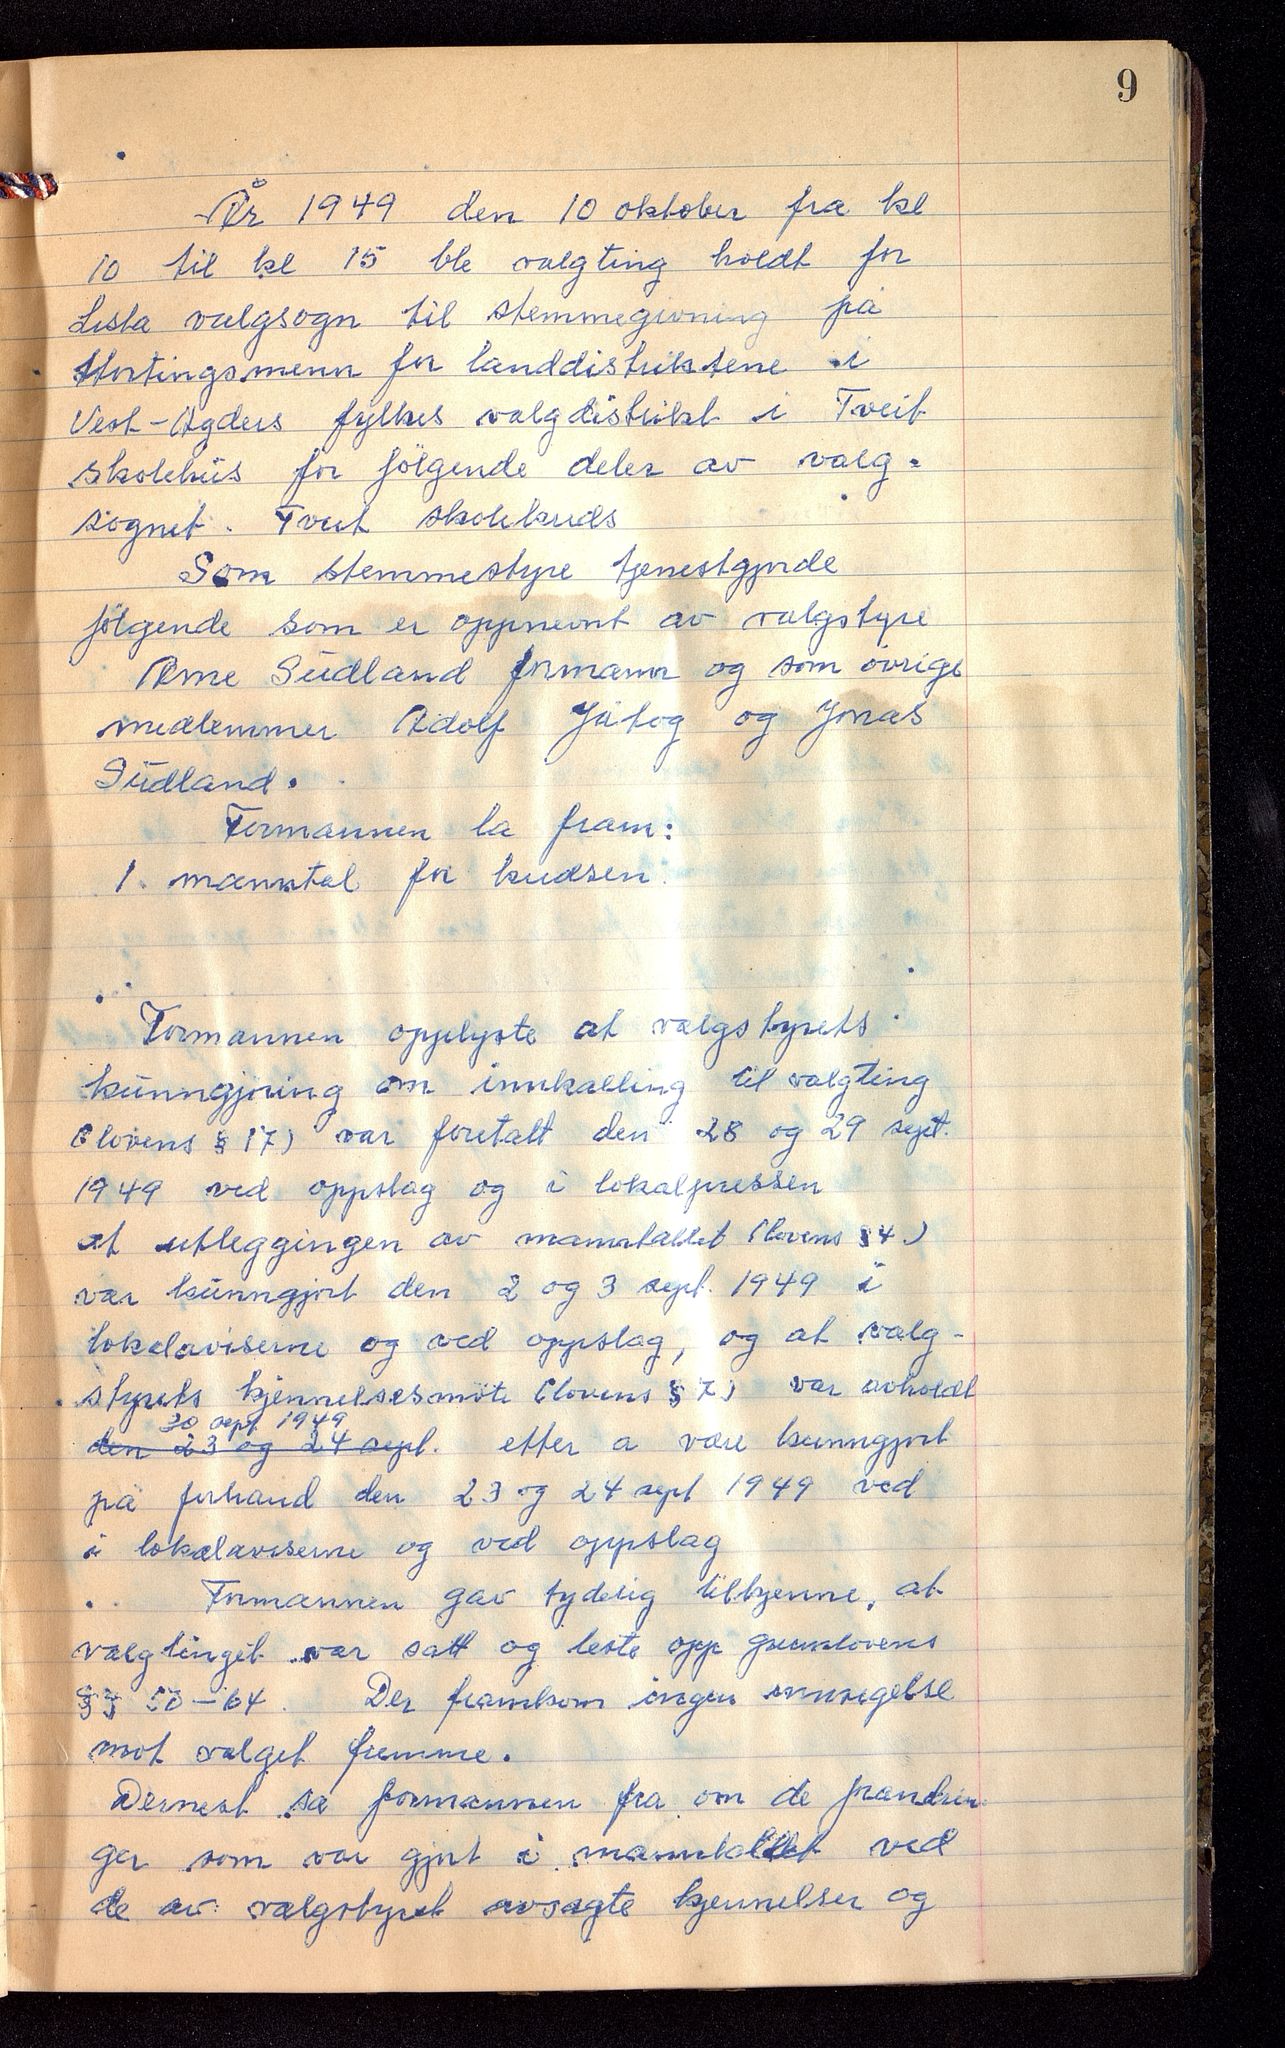 9
År 1949 den 10 oktober fra kl
10 til kl 15 ble valgting holdt for
Lista valgsogn til stemmegivning på
stortingsmenn for landdistriktene i
Vest-Agders fylkes valgdistrikt i Tveit
skolehus for følgende deler av valg-
sognet. Tveit skolekreds
Som stemmestyre tjenestgjorde
følgende som er oppnevnt av valgstyre
Arne Sudland formann og som øvrige
medlemmer Adolf Jåtog og Jonas
Sudland.
Formannen la fram:
1. manntal for kredsen
Formannen opplyste at valgstyrets
kunngjøring om innkalling til valgting
(lovens § 17) var foretatt den 28 og 29 sept.
1949 ved oppslag og i lokalpressen
at utleggingen av manntallet (lovens § 4)
var kunngjort den 2 og 3 sept. 1949 i
lokalaviserne og ved oppslag, og at valg-
styrets kjennelsesmøte (lovens § 7) var avholdt
30 sept 1949
den 23 og 24 sept. etter a være kunngjort
på forhand den 23 og 24 sept 1949 ved
i lokalaviserne og ved oppslag
Formannen gav tydelig tilkjenne, at
valgtinget var satt og leste opp grunnlovens
§§ 50-64. Der framkom ingen innsigelse
mot valget fremme.
Dernest sa formannen fra om de forandrin
ger som var gjort i manntallet ved
de av valgstyret avsagte kjennelser og